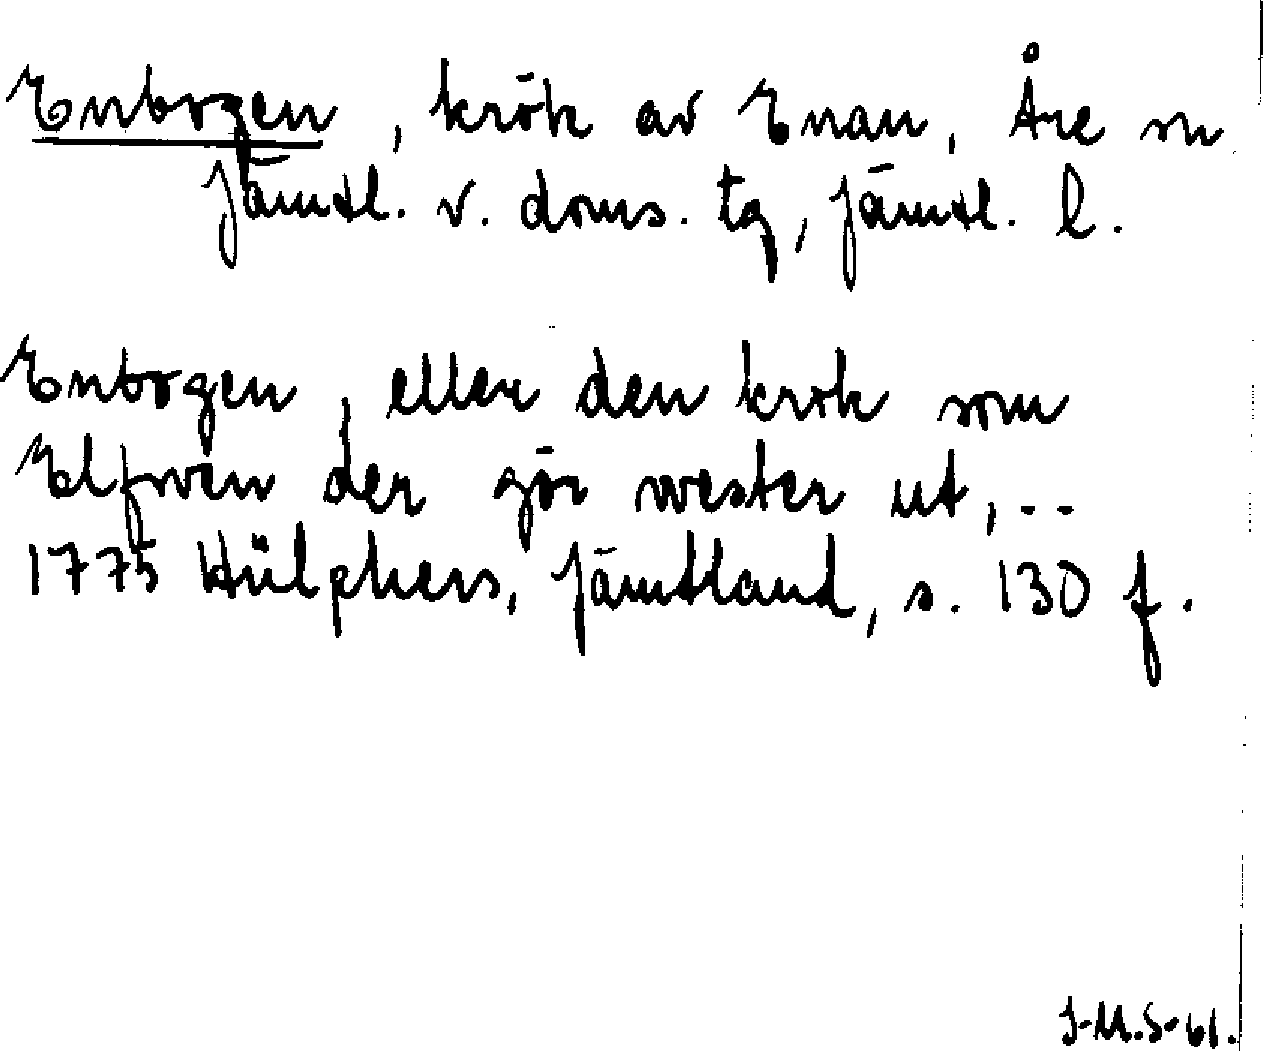 Enbogen, krök av Enan, Åre sn
Jämtl. v. doms. tg, Jämtl. l.
Enbogen, eller den krok som
Elfwen der gör wester ut, --
1775 Hülphers, Jämtland, s. 130 f.
J-M.S-61.